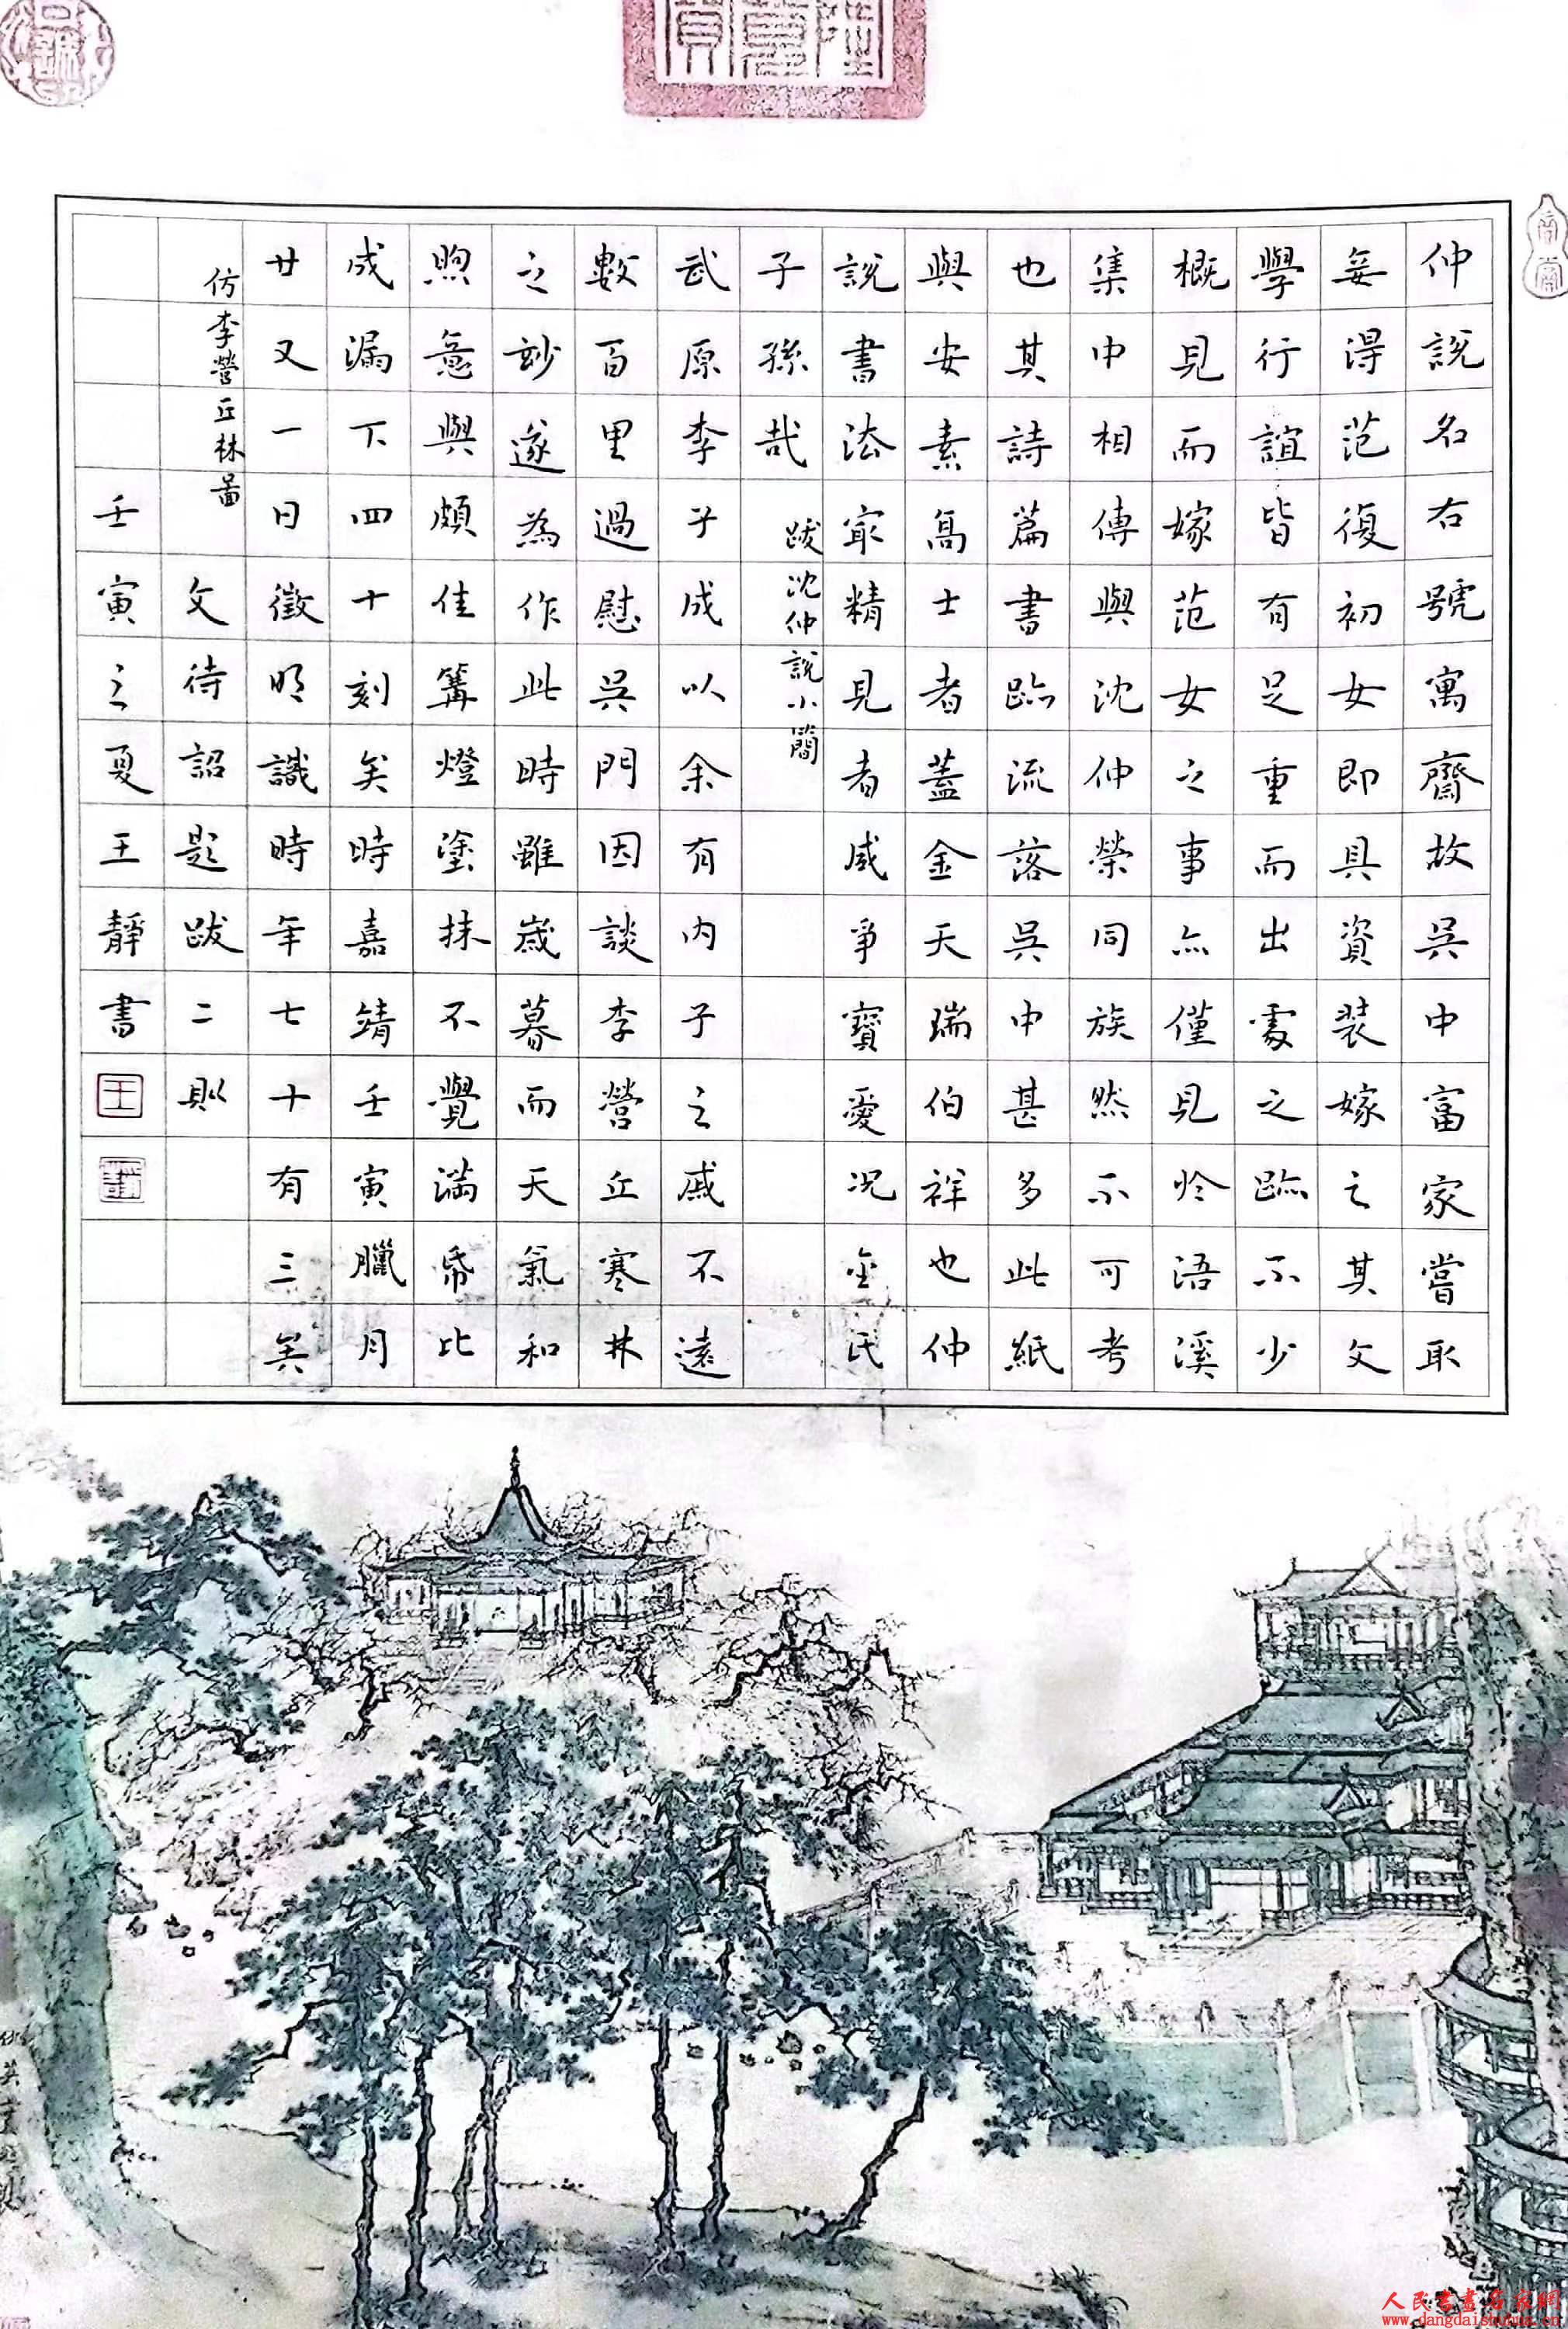 仲說名右號寓齋故吳中富家嘗取
妻得范復初女即具資裝嫁之其文
學行誼皆有足重而出處之跡不少
概見而嫁范女之事亦僅見於浯溪
集中相傳與沈仲榮同族然不可考
也其詩篇書跡流落吳中甚多此紙
與安素高士者蓋金天瑞伯祥也仲
說書法冣精見者咸爭寶愛況金氏
子孫哉
跋沈仲說小簡
武原李子成以余有內子之戚不遠
數百里過慰吳門因談李營丘寒林
之妙遂為作此時雖歲暮而天氣和
煦意興頗佳篝燈塗抹不覺滿帋比
成漏下四十刻矣時嘉靖壬寅臘月
廿又一日徵明識時年七十有三矣
仿李營丘林啚
文待詔題跋二則
壬寅之夏王靜書
王
人民書畫名家網
www.dangdaishuhua.cn